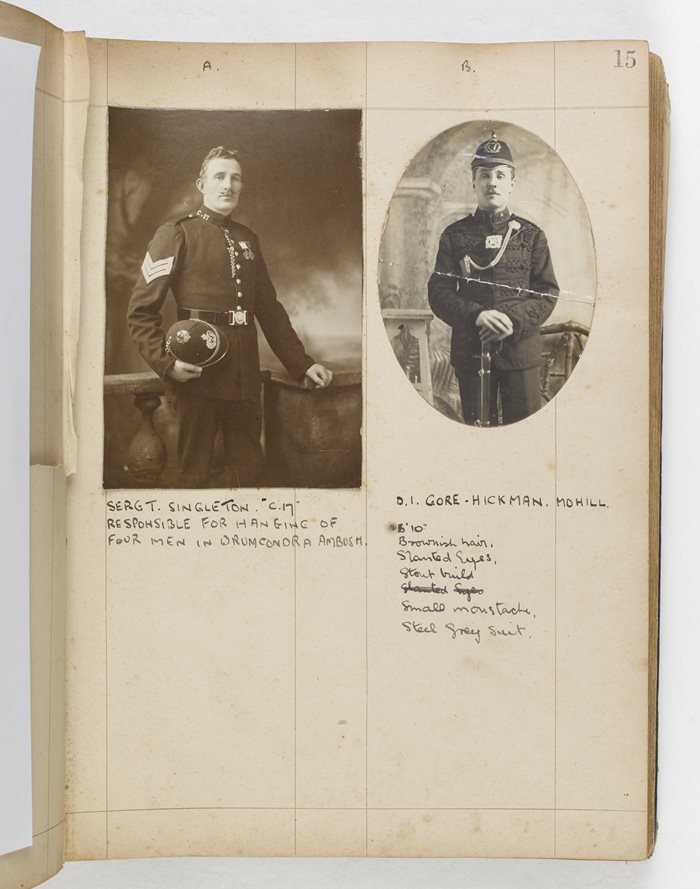 15
A.
B.
SERGT. SINGLETON. "C.17"
RESPONSIBLE FOR HANGING OF
FOUR MEN IN DRUMCONDRA AMBUSH.
D.I. GORE-HICKMAN. MOHILL.
5'10"
Brownish hair.
Slanted Eyes.
Stout build
Slanted Eyes
Small moustache.
Steel Grey Suit.